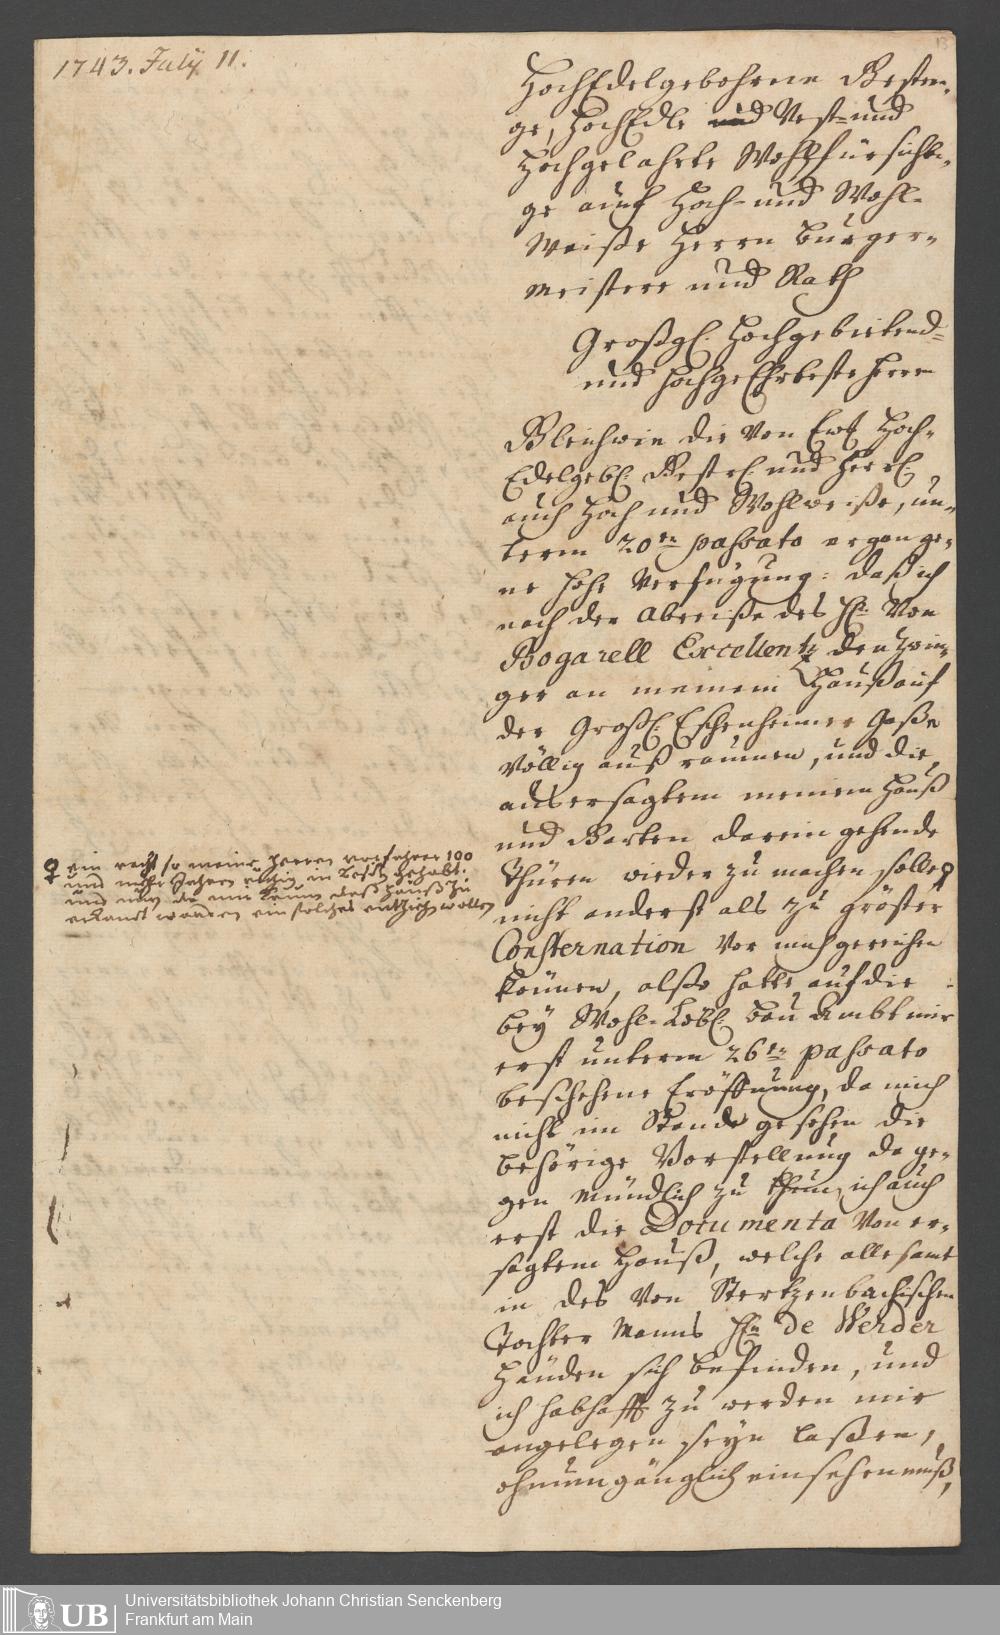 1743. July 11.
13
HochEdelgebohrne Gestren-
ge, HochEdle und Vest- und
Hochgelahrte Wohlfürsichti-
ge auch Hoch- und Wohl-
Weiße Herrn Burger-
meistere und Rath
Großgl. Hochgebietend-
und HochgeEhrteste Herrn
Gleichwie die von Ewl Hoch-
Edelgebl. Gestrl. und Herrl.
auch Hoch und Wohlweiße, un-
term 20ten passato ergange-
ne hohe Verfügung: daß ich
nach der Abreiße des H. Von
Bogarell Excellentz den Zwin-
ger an meinem Hauß auf
der Großl. Eschenheimer Gaße
völlig außraumen, und die
aus ersagtem meinem Hauß
und Garten darein gehende
Thüren wieder zu machen solle
nicht anderst als zu gröster
Consternation vor mich gereichen
können, alßo hatte auf die
bey Wohl-Löbl. Bau Ambt mir
erst unterm 26ten passato
beschehene Eröffnung, da mich
nicht im Stande gesehen die
behörige Vorstellung dage-
gen mündlich zu thun, ich auch
erst die Documenta von er-
sagtem Hauß, welche allesamt
in des von Stertzenbachischen
Tochter Manns Hn de Werder
Händen sich befinden, und
ich habhafft zu werden mir
angelegen seyn laßen,
ohnumgänglich einsehen muß,
ein recht so meine Herren vorfahrer 100
und mehr Jahren ruhig in Besitz gehabt.
und mag die mir Kaum deß Hauß zu
erkandt worden ein solches entzich wollen
Universitätsbibliothek Johann Christian Senckenberg
Frankfurt am Main
UB